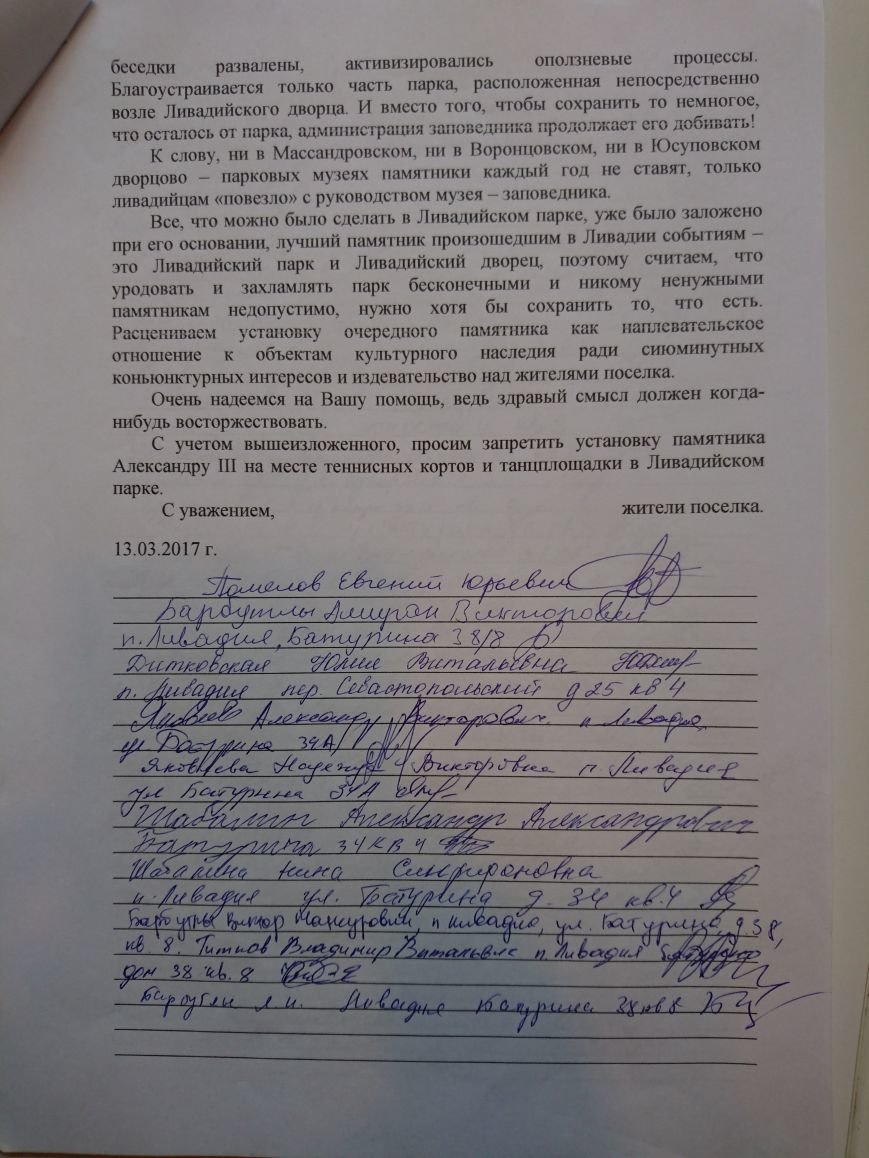 беседки развалены, активизировались оползневые процессы.
Благоустраивается только часть парка, расположенная непосредственно
возле Ливадийского дворца. И вместо того, чтобы сохранить то немногое,
что осталось от парка, администрация заповедника продолжает его добивать!
К слову, ни в Массандровском, ни в Воронцовском, ни в Юсуповском
дворцово – парковых музеях памятники каждый год не ставят, только
ливадийцам «повезло» с руководством музея – заповедника.
Все, что можно было сделать в Ливадийском парке, уже было заложено
при его основании, лучший памятник произошедшим в Ливадии событиям –
это Ливадийский парк и Ливадийский дворец, поэтому считаем, что
уродовать и захламлять парк бесконечными и никому ненужными
памятникам недопустимо, нужно хотя бы сохранить то, что есть.
Расцениваем установку очередного памятника как наплевательское
отношение к объектам культурного наследия ради сиюминутных
коньюнктурных интересов и издевательство над жителями поселка.
Очень надеемся на Вашу помощь, ведь здравый смысл должен когда-
нибудь восторжествовать.
С учетом вышеизложенного, просим запретить установку памятника
Александру III на месте теннисных кортов и танцплощадки в Ливадийском
парке.
С уважением, жители поселка.
13.03.2017 г.
Помелов Евгений Юрьевич
Барбутлы Викторович
п. Ливадия, Батурина 38/8
Дитковская Юлия Витальевна
п. Ливадия пер. Севастопольский д 25 кв 4
Яковлев Александр Викторович. п Ливадия,
ул. Батурина 34А
Яковлева Надежда Викторовна п. Ливадия
ул Батурина 34А
Шабалин Александр Александрович
Батурина 34 кв 4
Нина
п. Ливадия ул. Батурина д. 34 кв. 4
Барбутлы Виктор п Ливадия, ул. Батурина, д. 38,
кв. 8. Владимир п. Ливадия
дом 38 кв. 8
Ливадия Батурина 38 кв 8